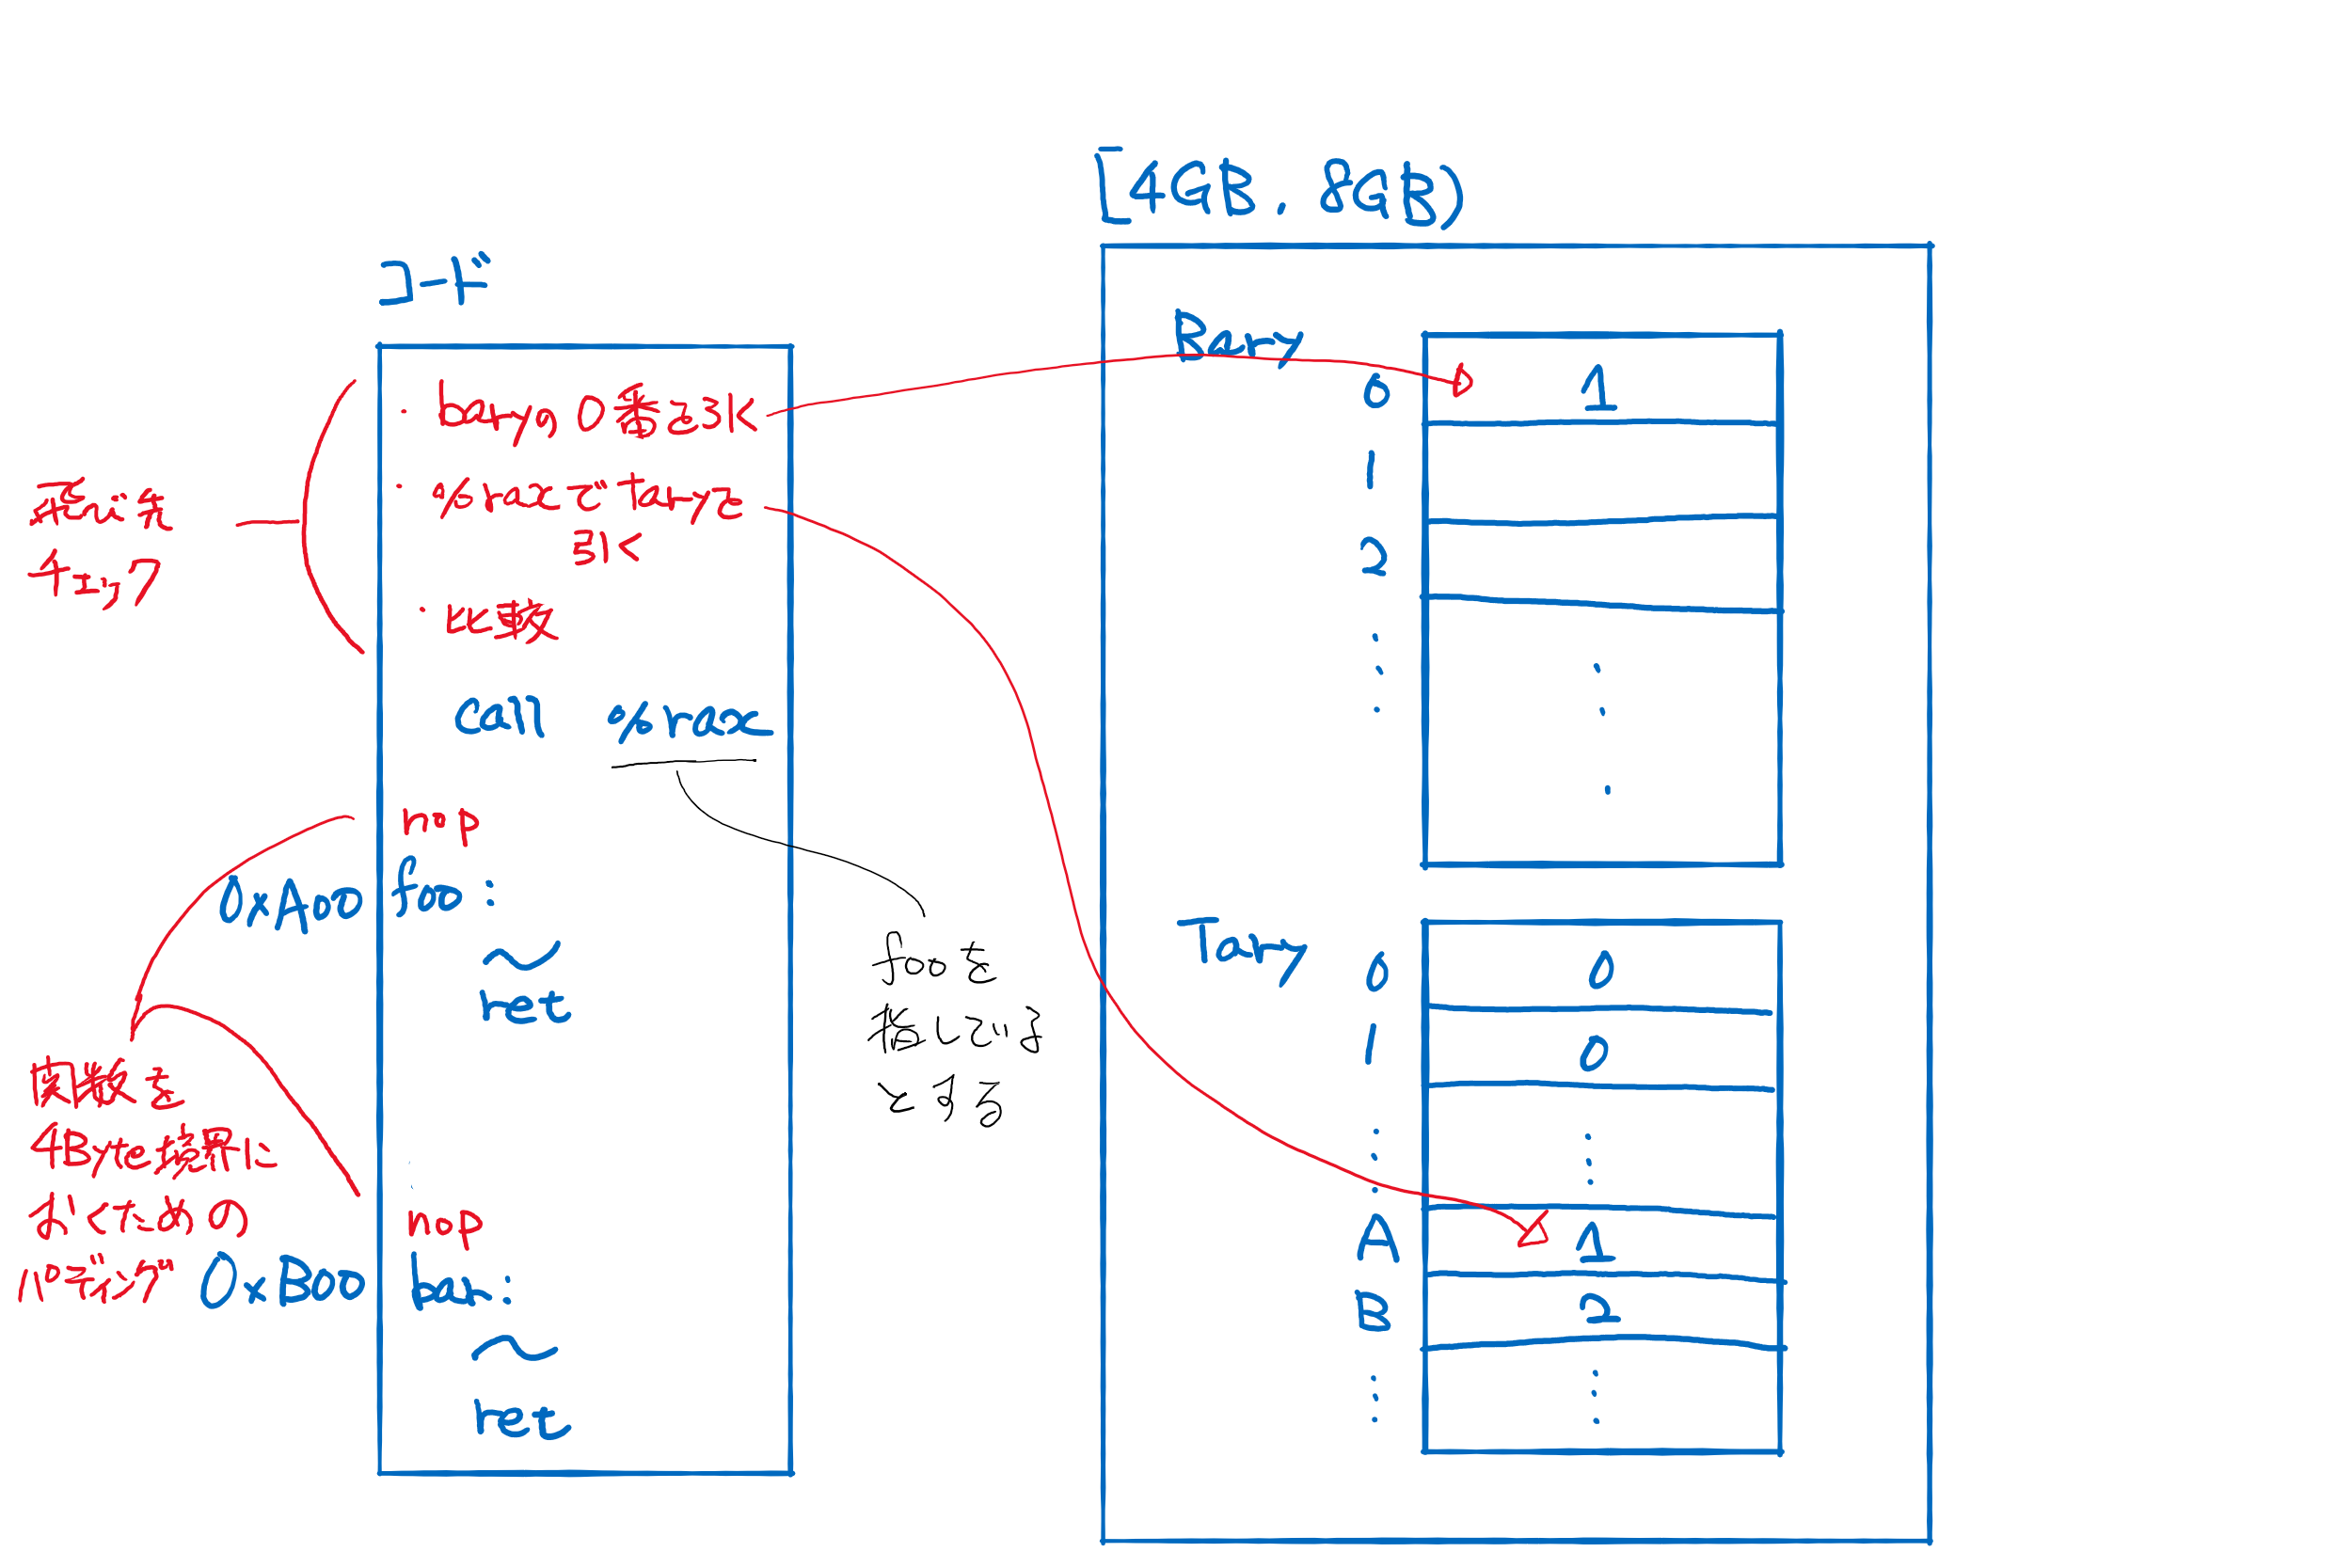 [4GB, 8GB)
コード
・baryの0番を引く
・%raxでtaryを
引く
・比数
飛び先
チェック
call %rax
nop
0xA00 foo:
~
ret
fooを
指している
とする
関数を
4Byte境界に
おくための
パディング
nop
0xB00 bar:
~
ret
Bary
0 1
1
2
Tary
0 0
1 0
A 1
B 2